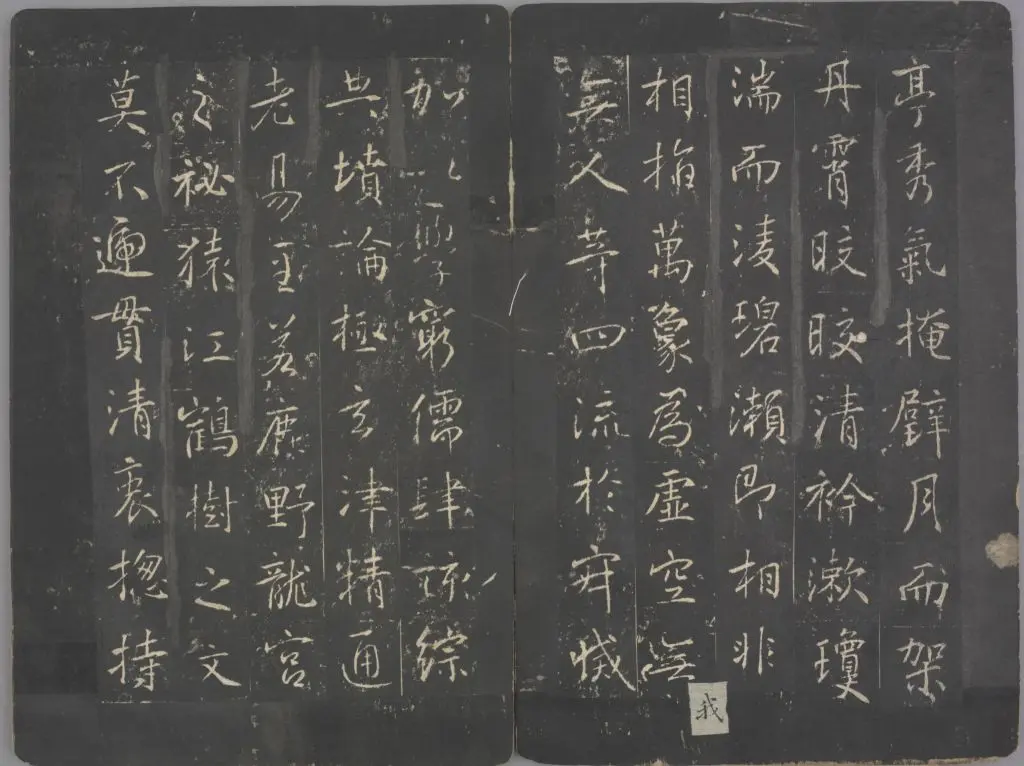 亭秀氣掩璧月而架
丹霄皎皎清衿漱瓊
湍而淩碧瀨即相非
相指萬象爲虛空無
我
無人等四流於寂滅
加以學窮儒肆疏綜
典墳論極玄津精通
老易至若鹿野龍宮
之祕猿江鶴樹之文
莫不遍貫清衷揔持